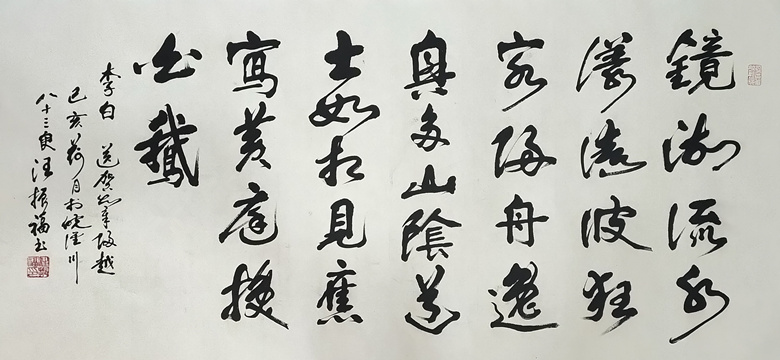 鏡湖流水
漾清波狂
客歸舟逸
興多山陰道
士如相見應
寫黃庭換
白鵝
李白 送賀賓客歸越
己亥荷月於皖涇川
八十三叟汪振福書